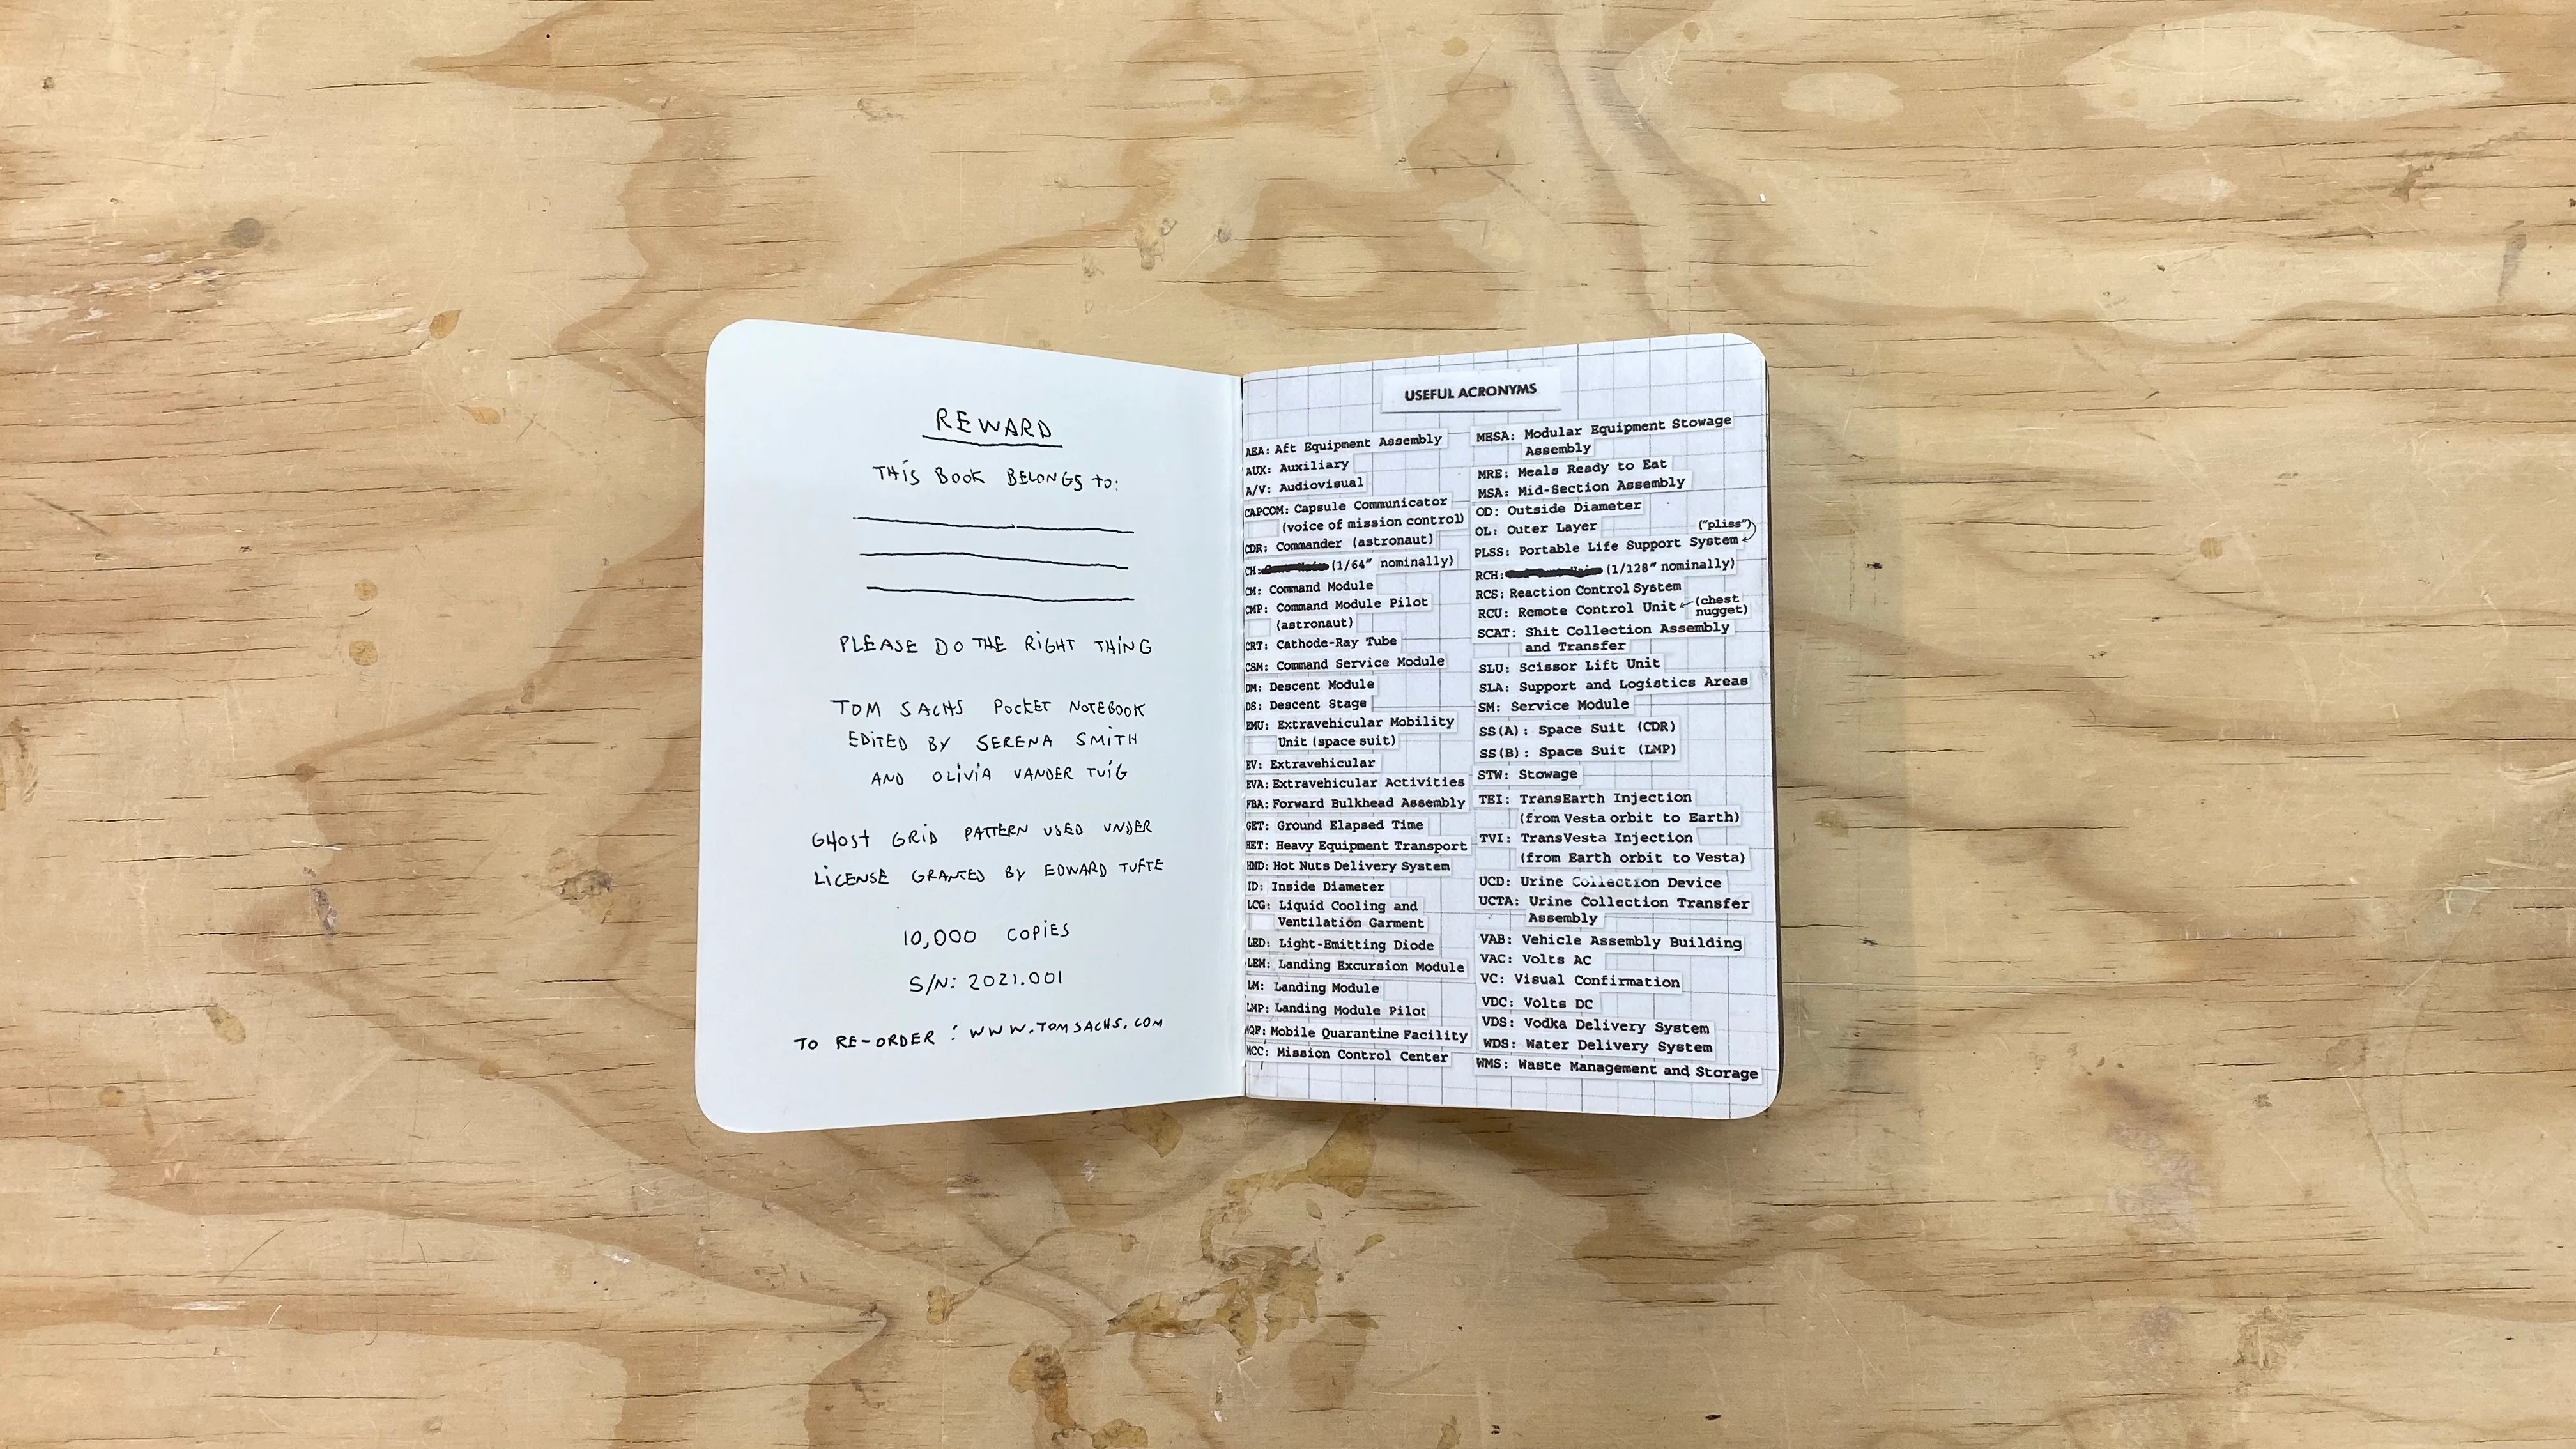 REWARD
THIS BOOK BELONGS TO:
PLEASE DO THE RIGHT THING
TOM SACHS POCKET NOTEBOOK
EDITED BY SERENA SMITH
AND OLIVIA VANDER TUIG
GHOST GRID PATTERN USED UNDER
LICENSE GRANTED BY EDWARD TUFTE
10,000 COPIES
S/N: 2021.001
TO RE-ORDER : WWW.TOMSACHS.COM
USEFUL ACRONYMS
AEA: Aft Equipment Assembly
AUX: Auxiliary
A/V: Audiovisual
CAPCOM: Capsule Communicator
(voice of mission control)
CDR: Commander (astronaut)
CH: (1/64" nominally)
CM: Command Module
CMP: Command Module Pilot
(astronaut)
CRT: Cathode-Ray Tube
CSM: Command Service Module
DM: Descent Module
DS: Descent Stage
EMU: Extravehicular Mobility
Unit (space suit)
EV: Extravehicular
EVA: Extravehicular Activities
FBA: Forward Bulkhead Assembly
GET: Ground Elapsed Time
HET: Heavy Equipment Transport
HND: Hot Nuts Delivery System
ID: Inside Diameter
LCG: Liquid Cooling and
Ventilation Garment
LED: Light-Emitting Diode
LEM: Landing Excursion Module
LM: Landing Module
LMP: Landing Module Pilot
MQF: Mobile Quarantine Facility
MCC: Mission Control Center
MESA: Modular Equipment Stowage
Assembly
MRE: Meals Ready to Eat
MSA: Mid-Section Assembly
OD: Outside Diameter
OL: Outer Layer
("pliss")
PLSS: Portable Life Support System
RCH: (1/128" nominally)
RCS: Reaction Control System
RCU: Remote Control Unit (chest
nugget)
SCAT: Shit Collection Assembly
and Transfer
SLU: Scissor Lift Unit
SLA: Support and Logistics Areas
SM: Service Module
SS(A): Space Suit (CDR)
SS(B): Space Suit (LMP)
STW: Stowage
TEI: TransEarth Injection
(from Vesta orbit to Earth)
TVI: TransVesta Injection
(from Earth orbit to Vesta)
UCD: Urine Collection Device
UCTA: Urine Collection Transfer
Assembly
VAB: Vehicle Assembly Building
VAC: Volts AC
VC: Visual Confirmation
VDC: Volts DC
VDS: Vodka Delivery System
WDS: Water Delivery System
WMS: Waste Management and Storage